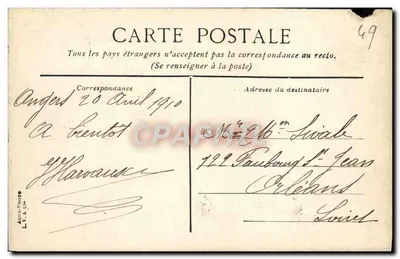 49
CARTE POSTALE
Tous les pays étrangers n'acceptent pas la correspondance au recto.
(Se renseigner à la poste)
Correspondance
Angers 20 Avril 1910
A bientôt
Adresse du destinataire
122 Faubourg St Jean
Orléans
Loiret